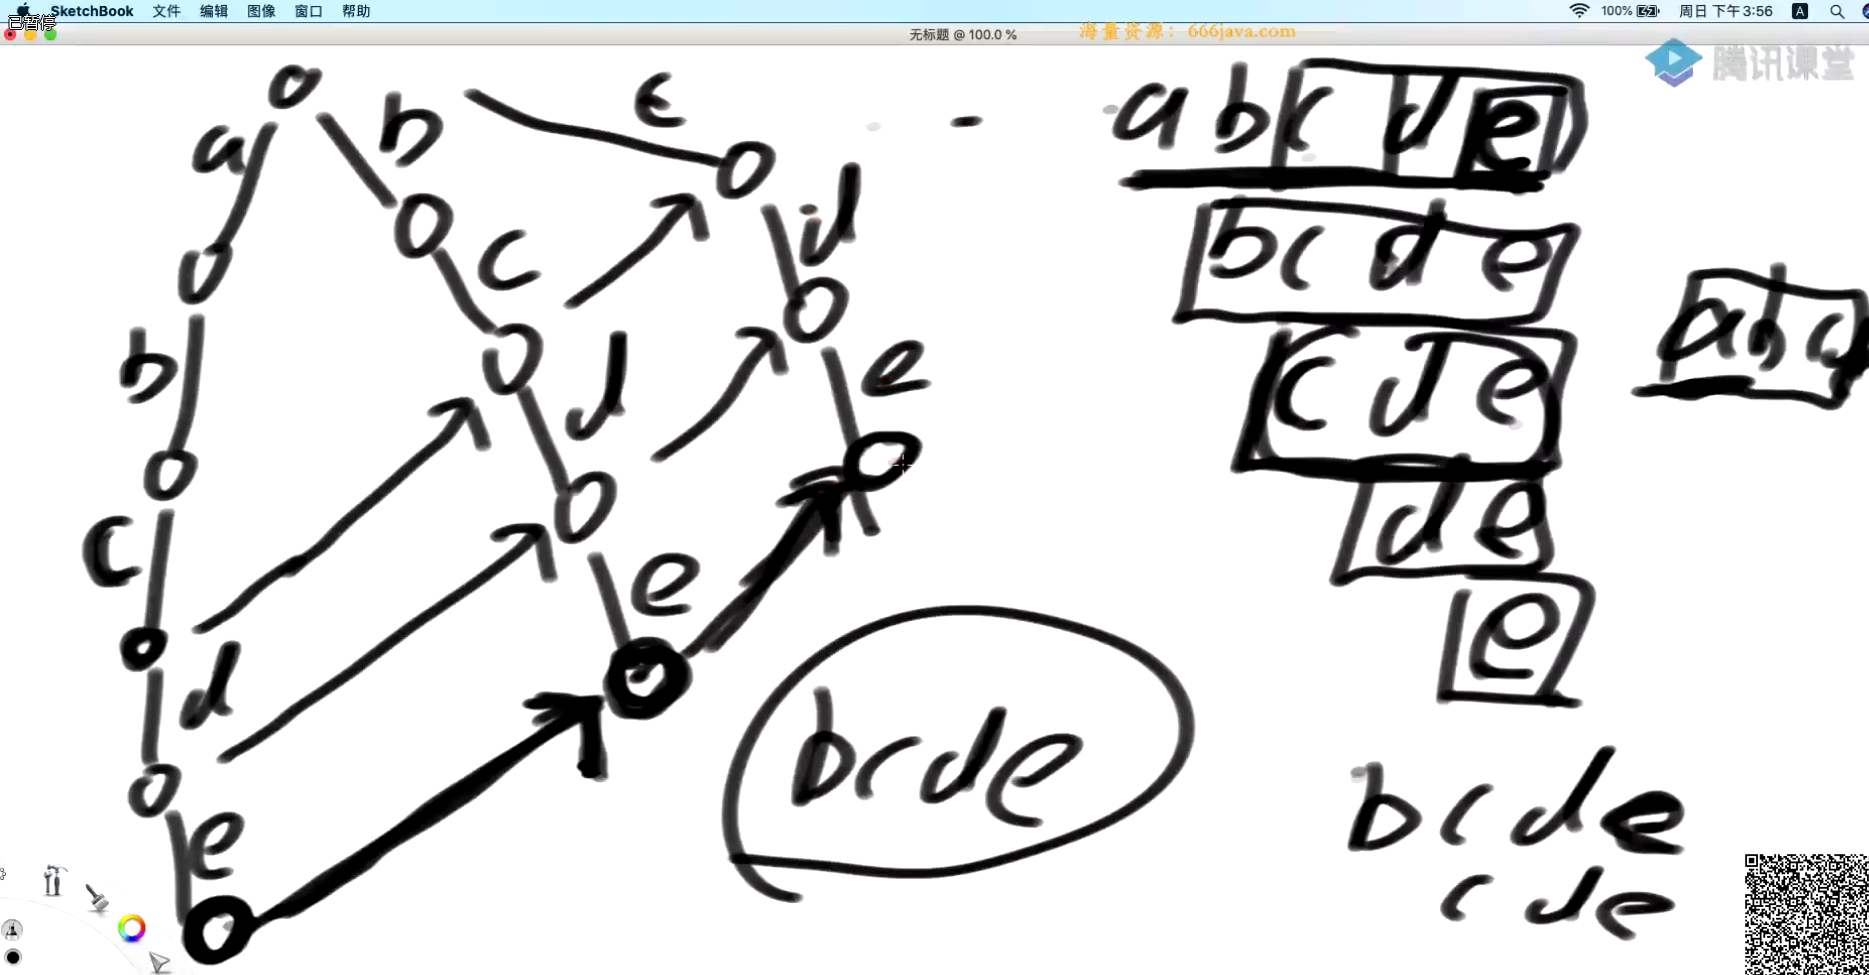 SketchBook 文件 编辑 图像 窗口 帮助 100% 周日 下午3:56 A
已暂停
无标题 @ 100.0 %
海量资源：666java.com
腾讯课堂
a b c
a b c d e
c d
b c d e
b d e
a b c
c d e
c
d e
d e
e
b c d e
b c d e
e
c d e